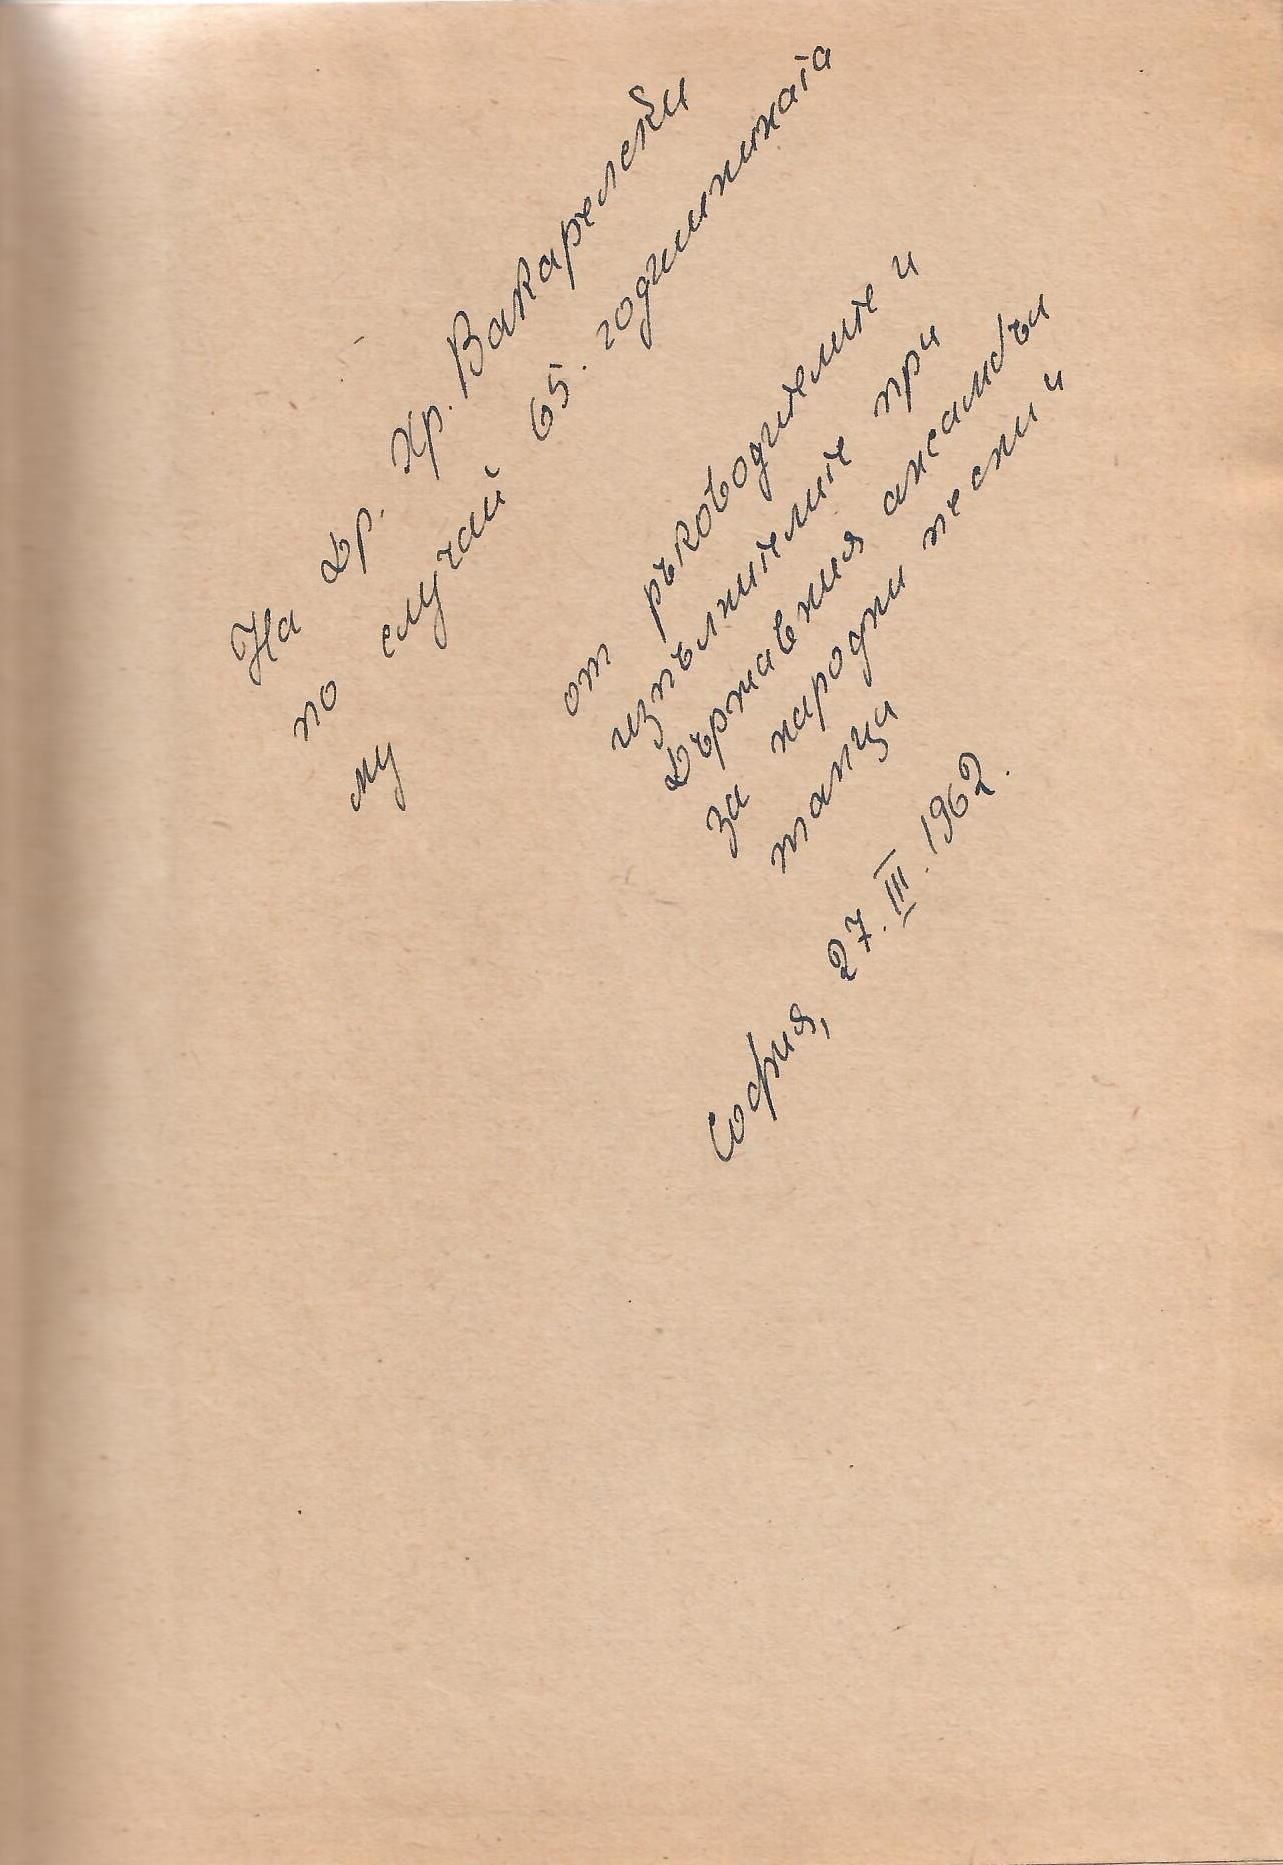 На Др. Хр. Вакарелски
по случай 65. годишнината
му
от ръководителите и
изпълнителите при
Държавния ансамбъл
за народни песни и
танци
София, 27.III.1962.